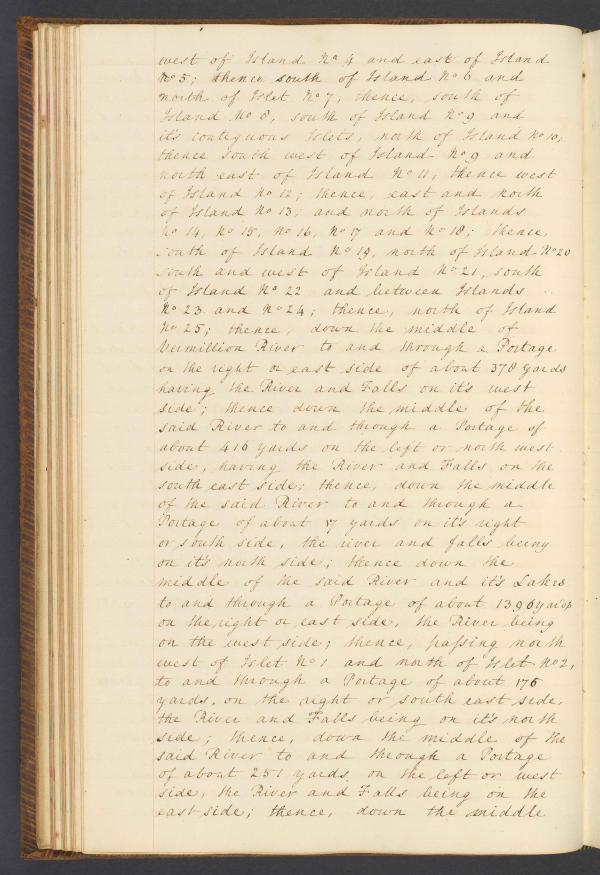 west of Island No 4 and east of Island
No 5; thence south of Island No 6 and
north of Islet No 7, thence, south of
Island No 8, south of Island No 9 and
it's contiguous Islets, north of Island No 10,
thence south west of Island No 9 and
north east of Island No 11, thence west
of Island No 12; thence, east and north
of Island No 13; and north of Islands
No 14, No 15, No 16, No 17 and No 18; thence,
south of Island No 19, north of Island No 20
south and west of Island No 21, south
of Island No 22 and between Islands
No 23 and No 24; thence, north of Island
No 25; thence, down the middle of
Vermillion River to and through a Portage
on the right or east side of about 378 yards
having the River and Falls on it's west
side; thence down the middle of the
said River to and through a Portage of
about 416 yards on the left or north west
side, having the River and Falls on the
south east side; thence, down the middle
of the said River to and through a
Portage of about 17 yards on it's right
or south side, the river and falls being
on it's north side; thence down the
middle of the said River and it's Lakes
to and through a Portage of about 1396 yards
on the right or east side, the River being
on the west side; thence, passing north
west of Islet No 1 and north of Islet No 2,
to and through a Portage of about 176
yards, on the right or south east side,
the River and Falls being on it's north
side; thence, down the middle of the
said River to and through a Portage
of about 251 yards, on the left or west
side, the River and Falls being on the
east side; thence, down the middle